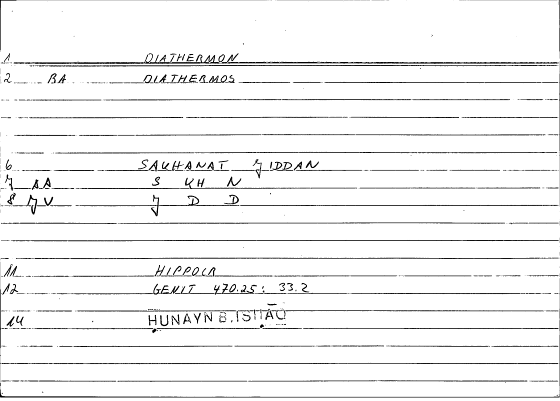 1 DIATHERMON
2 BA DIATHERMOS
6 SAKHANAT JIDDAN
7 AA S KH N
8 JV J D D
11 HIPPOCR
12 GENIT 470.25: 33.2
14 ḤUNAYN B. ISḤĀQ